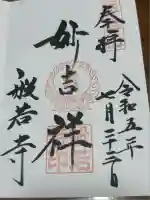 奉拝
令和五年
七月二十二日
妙吉祥
般若寺